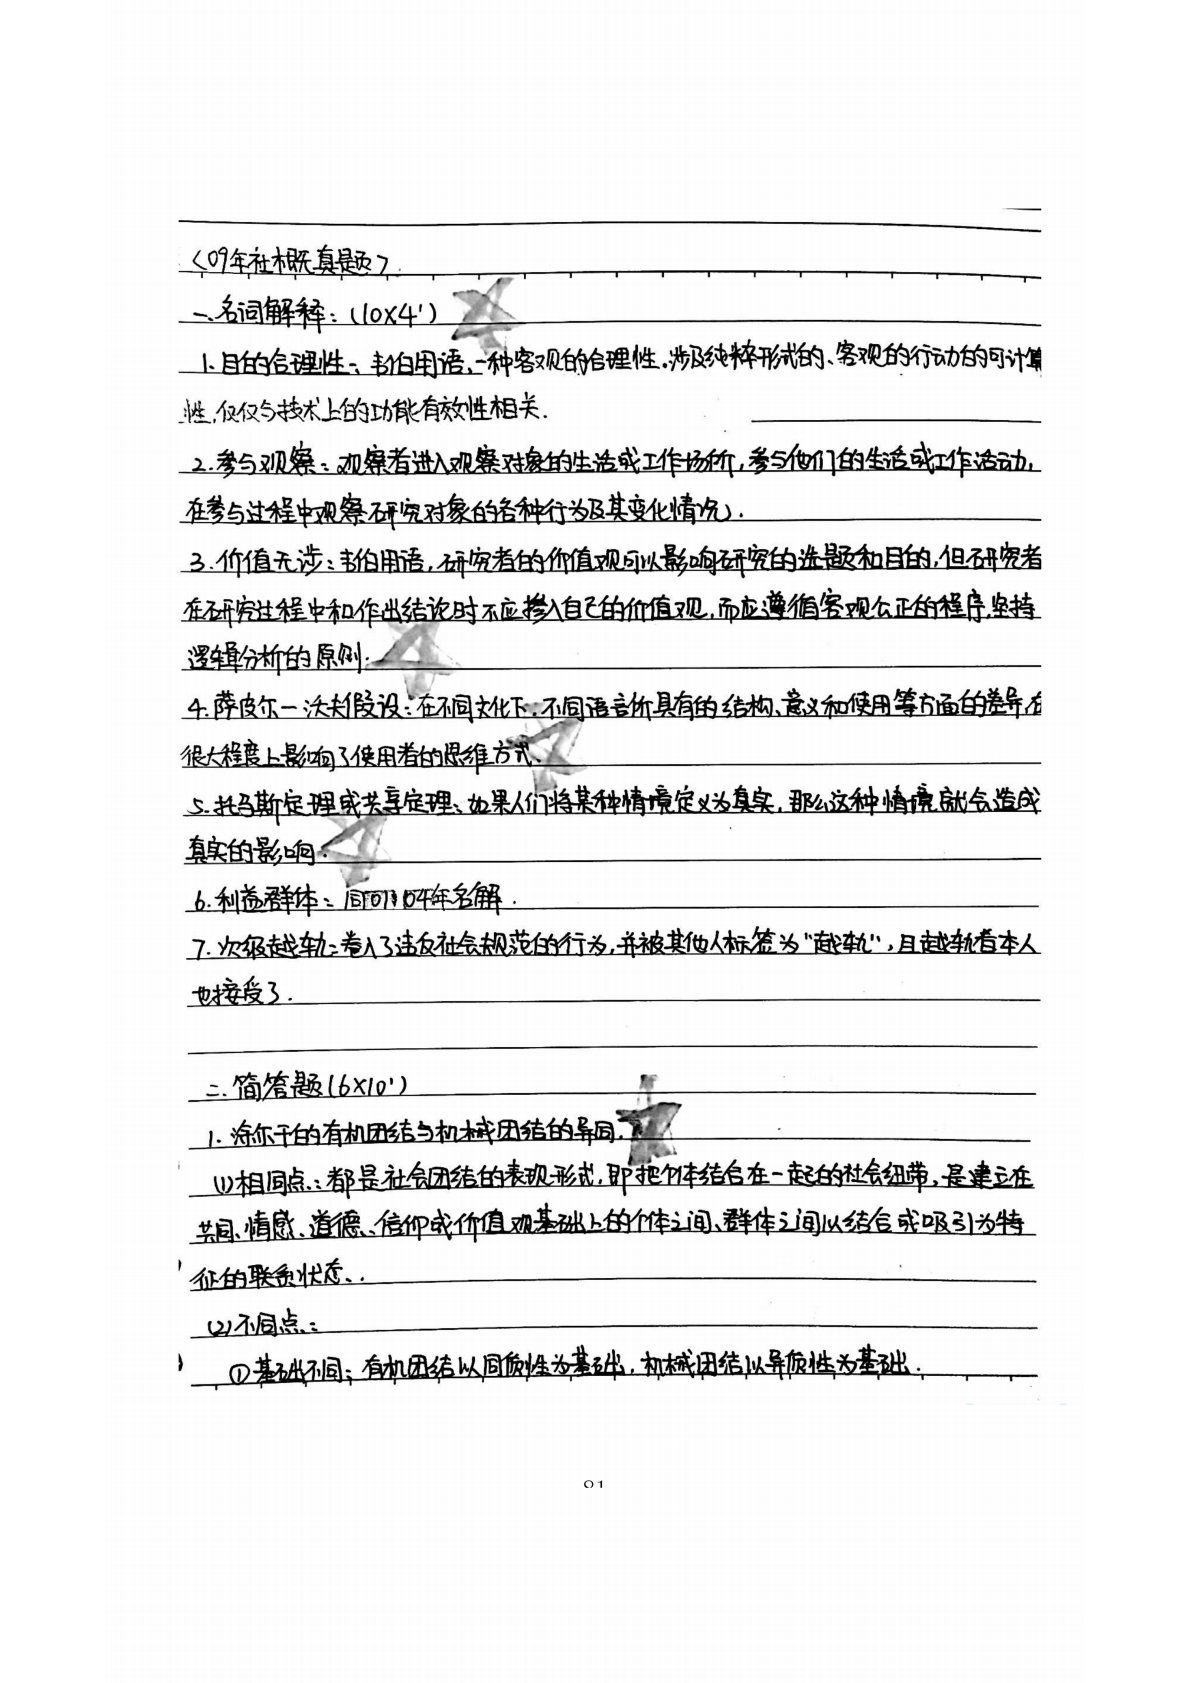 <09年社概真题>
一、名词解释：(10×4')
1.目的合理性：韦伯用语，一种客观的合理性。涉及纯粹形式的、客观的行动的可计算
性，仅仅与技术上的功能有效性相关．
2.参与观察：观察者进入观察对象的生活或工作场所，参与他们的生活或工作活动，
在参与过程中观察研究对象的各种行为及其变化情况．
3.价值无涉：韦伯用语，研究者的价值观可以影响研究的选题和目的，但研究者
在研究过程中和作出结论时不应掺入自己的价值观，而应遵循客观公正的程序，坚持
逻辑分析的原则．
4.萨皮尔一沃夫假设：在不同文化下，不同语言所具有的结构、意义和使用等方面的差异，在
很大程度上影响了使用者的思维方式．
5.托马斯定理或共享定理：如果人们将某种情境定义为真实，那么这种情境就会造成
真实的影响．
6.利益群体：同04年名解．
7.次级越轨：卷入了违反社会规范的行为，并被其他人标签为"越轨"，且越轨者本人
也接受了．
二．简答题(6×10')
1.涂尔干的有机团结与机械团结的异同．
(1)相同点：都是社会团结的表现形式，即把个体结合在一起的社会纽带，是建立在
共同情感、道德、信仰或价值观基础上的个体之间、群体之间以结合或吸引为特
征的联系状态．
(2)不同点：
①基础不同：有机团结以同质性为基础，机械团结以异质性为基础．